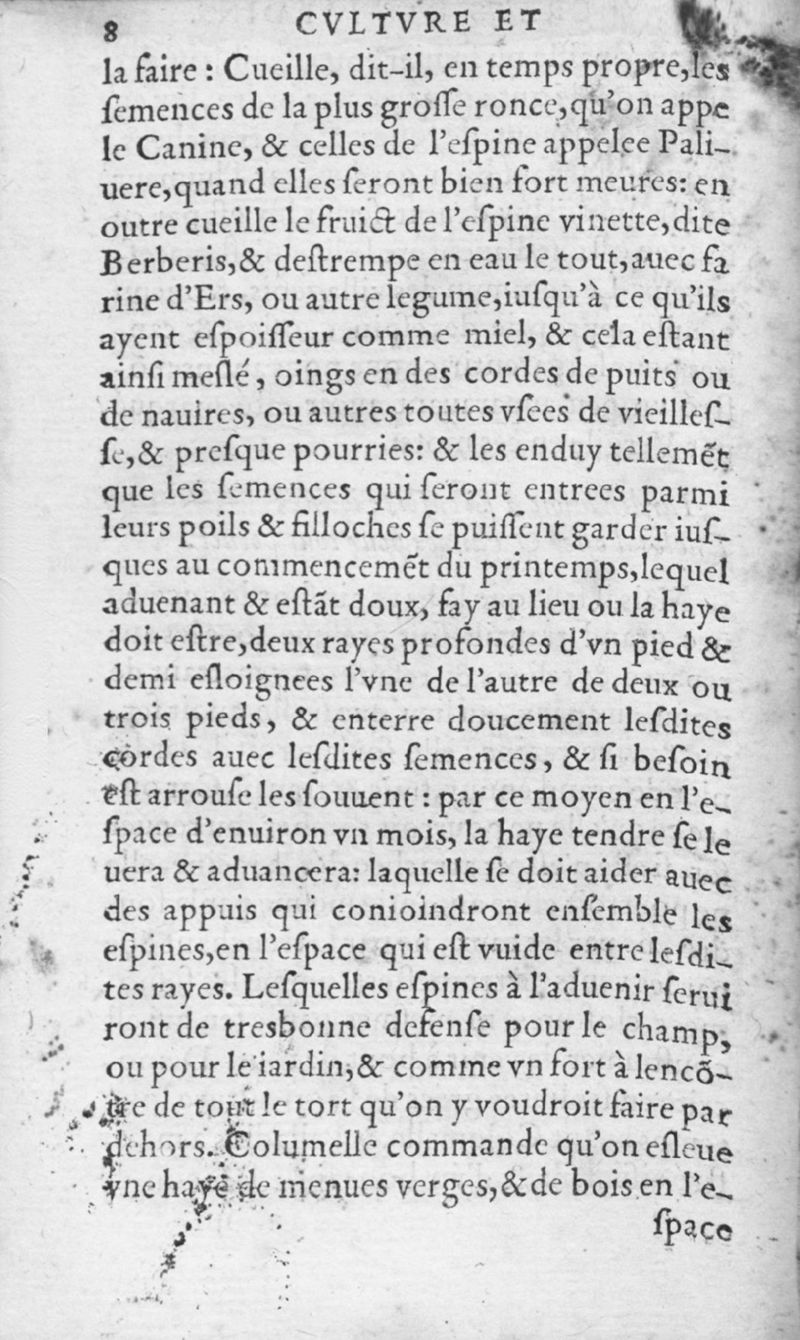 8 CVLTVRE ET
la faire : Cueille, dit-il, en temps propre,les
ſemences de la plus groſſe ronce,qu'on appe
le Canine, & celles de l'eſpine appelee Pali-
uere,quand elles ſeront bien fort meures: en
outre cueille le fruict de l'eſpine vinette,dite
Berberis,& deſtrempe en eau le tout,auec fa
rine d'Ers, ou autre legume,iuſqu'à ce qu'ils
ayent eſpoiſſeur comme miel, & cela eſtant
ainſi meſlé, oings en des cordes de puits ou
de nauires, ou autres toutes vſees de vieilleſ-
ſe,& preſque pourries: & les enduy tellemẽt
que les ſemences qui ſeront entrees parmi
leurs poils & filloches ſe puiſſent garder iuſ-
ques au commencemẽt du printemps,lequel
aduenant & eſtãt doux, fay au lieu ou la haye
doit eſtre,deux rayes profondes d'vn pied &
demi eſloignees l'vne de l'autre de deux ou
trois pieds, & enterre doucement leſdites
cordes auec leſdites ſemences, & ſi beſoin
eſt arrouſe les ſouuent : par ce moyen en l'e-
ſpace d'enuiron vn mois, la haye tendre ſe le
uera & aduancera: laquelle ſe doit aider auec
des appuis qui conioindront enſemble les
eſpines,en l'eſpace qui eſt vuide entre leſdi-
tes rayes. Leſquelles eſpines à l'aduenir ſerui
ront de tresbonne defenſe pour le champ,
ou pour le iardin,& comme vn fort à lencõ-
tre de tout le tort qu'on y voudroit faire par
dehors. Columelle commande qu'on eſleue
vne haye de menues verges,&de bois en l'e-
ſpace